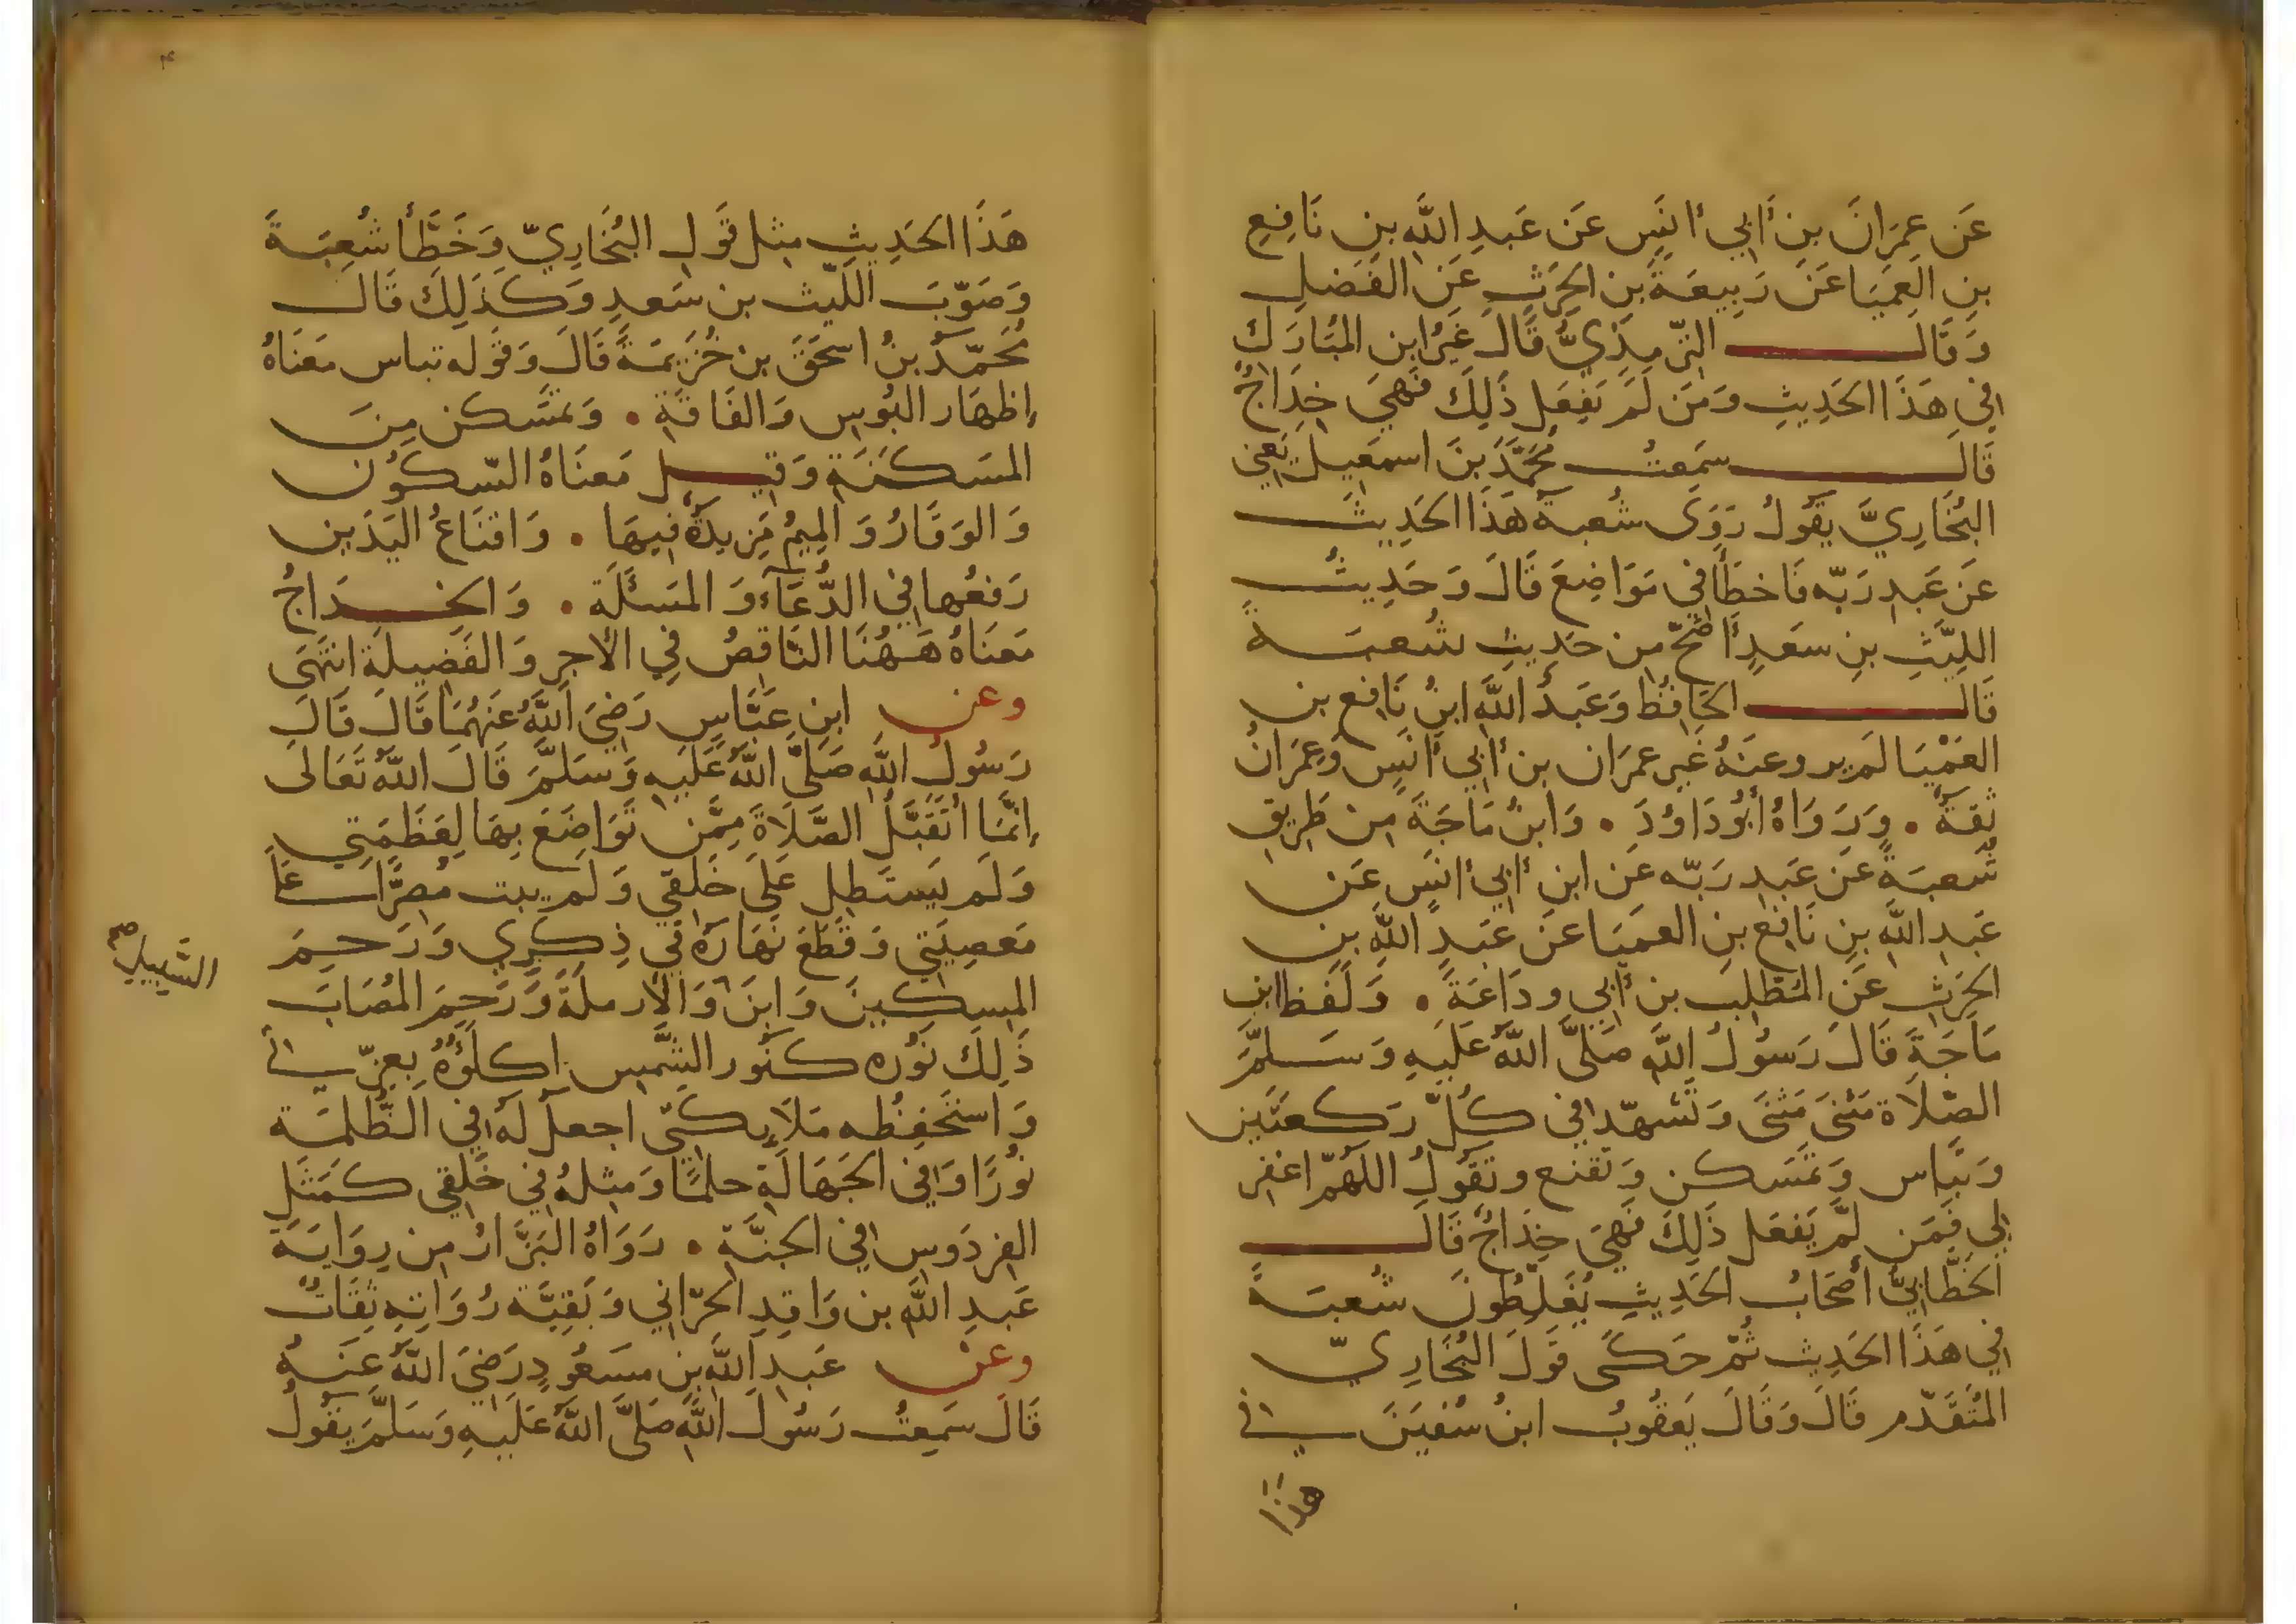 عَن عِمرَانَ بنِ أَبِي أنَسٍ عَن عَبدِ اللَّهِ بنِ نَافِعِ
بنِ العَميَا عَن رَبِيعَةَ بنِ الحَرِثِ عَنِ الفَضلِ
وَقَالَ التّرمِذِيُّ قَالَ غَيرُ ابنِ المُبَارَكِ
فِي هَذَا الحَدِيثِ وَمَن لَم يَفعَل ذَلِكَ فَهِيَ خِدَاجٌ
قَالَ سَمِعتُ مُحَمَّدَ بنَ اسمَعِيلَ يَعنِي
البُخَارِيَّ يَقُولُ رَوَى شُعبَةُ هَذَا الحَدِيثَ
عَن عَبدِ رَبّه فَاخطَأَ فِي مَوَاضِعَ قَالَ وَحَدِيثُ
اللَّيثِ بنِ سَعدٍ أَصَحّ مِن حَدِيثِ شُعبَةَ
قَالَ الحَافِظُ وَعَبدُ اللَّهِ ابنُ نَافِعِ بن
العَمْيَا لَم يروعَنهُ غَير عمرَان بن أَبِي أنَسٍ وَعِمرَانُ
ثِقَةٌ . وَرَوَاهُ أَبُو دَاوُدَ . وَابنُ مَاجَةَ مِن طَرِيقِ
شُعبَةَ عَن عَبدِ رَبّه عَن ابنِ أَبِي أنَسٍ عَن
عَبدِ اللَّهِ بنِ نَافِعِ بنِ العميَا عَن عَبدِ اللَّهِ بنِ
الحَرِثِ عَنِ المُطَّلِبِ بن أَبِي وِدَاعَةَ . وَلَفظ ابنِ
مَاجَةَ قَالَ رَسُولُ اللَّهِ صَلَّى اللَّهُ عَلَيهِ وَسَلَّمَ
الصّلَاة مَثنَى مَثنَى وَتَشَهّد فِي كُلِّ رَكعَتَينِ
وَتبَاس وَتمَسكن وَتقنع وتَقُولُ اللَّهُمّ اغفِر
لِي فَمَن لَم يَفعَل ذَلِكَ فَهِيَ خِدَاجٌ قَالَ
الخَطَّابِيُّ أَصحَابُ الحَدِيثِ يُغَلِّطُونَ شُعبَةَ
فِي هَذَا الحَدِيثِ ثُمّ حَكَى قَولَ البُخَارِيّ
المُتَقَدّم قَالَ وَقَالَ يَعقُوبُ ابنُ سُفيَنَ فِي
هذا
هَذَا الحَدِيثِ مِثل قَولِ البُخَارِيّ وَخَطَّأ شُعبَةَ
وَصَوّبَ اللَّيث بن سَعدٍ وَكَذَلِكَ قَالَ
مُحَمّدُ بنُ اسحَقَ بن خُزَيمَةَ قَالَ وَقَوله تباس مَعنَاهُ
إظهَار البُوسِ وَالفَاقَةِ . وَتمَسكن مِنَ
المَسكَنَةِ وَقِيل مَعنَاهُ السّكُون
وَالوَقَارُ وَالمِيمُ مَزِيدَةٌ فِيهَا . وَاقنَاعُ اليَدَينِ
رَفعُها فِي الدُّعَآءِ وَالمَسئَلَةِ . وَالخِدَاجُ
مَعنَاهُ هَهُنَا النَّاقِصُ فِي الأجرِ وَالفَضِيلَةِ انتَهَى
وعن ابنِ عَبَّاسٍ رَضِيَ اللَّهُ عَنهُمَا قَالَ قَالَ
رَسُولُ اللَّهِ صَلَّى اللَّهُ عَلَيهِ وَسَلَّمَ قَالَ اللَّهُ تَعَالَى
إنَّمَا أتَقَبَّلُ الصَّلَاةَ مِمَّن تَوَاضَعَ بِهَا لِعَظَمَتِي
وَلَم يَستَطِل عَلَى خَلقِي وَلَم يبت مُصِرًّا عَلَى
مَعصِيَتِي وَقَطَعَ نَهَارَهُ فِي ذِكرِي وَرَحِمَ
المِسكِينَ وَابنَ وَالأرملَةَ وَرَحِمَ المُصَابَ
السَّبِيلِ صح
ذَلِكَ نُوُره كَنُور الشَّمسِ اكلَؤُهُ بِعِزّتِي
وَاستَحفِظُه مَلَايِكَتِي اجعلُ لَهُ فِي الظُّلمَة
نُورًا وَفِي الجَهَالَةِ حلمًا وَمِثلهُ فِي خَلقِي كَمَثَلِ
الفِردَوسِ فِي الجَنَّةِ . رَوَاهُ البَزَّارُ مِن رِوَايَةِ
عَبدِ اللَّهِ بن وَاقِدِ الحَرّانِي وَبَقِيَّة رُوَاتِهِ ثِقَاتٌ
وعن عَبدِ اللَّهِ بنِ مَسعُودٍ رَضِيَ اللَّهُ عَنهُ
قَالَ سَمِعتُ رَسُولَ اللَّهِ صَلَّى اللَّهُ عَلَيهِ وَسَلَّمَ يَقُولُ